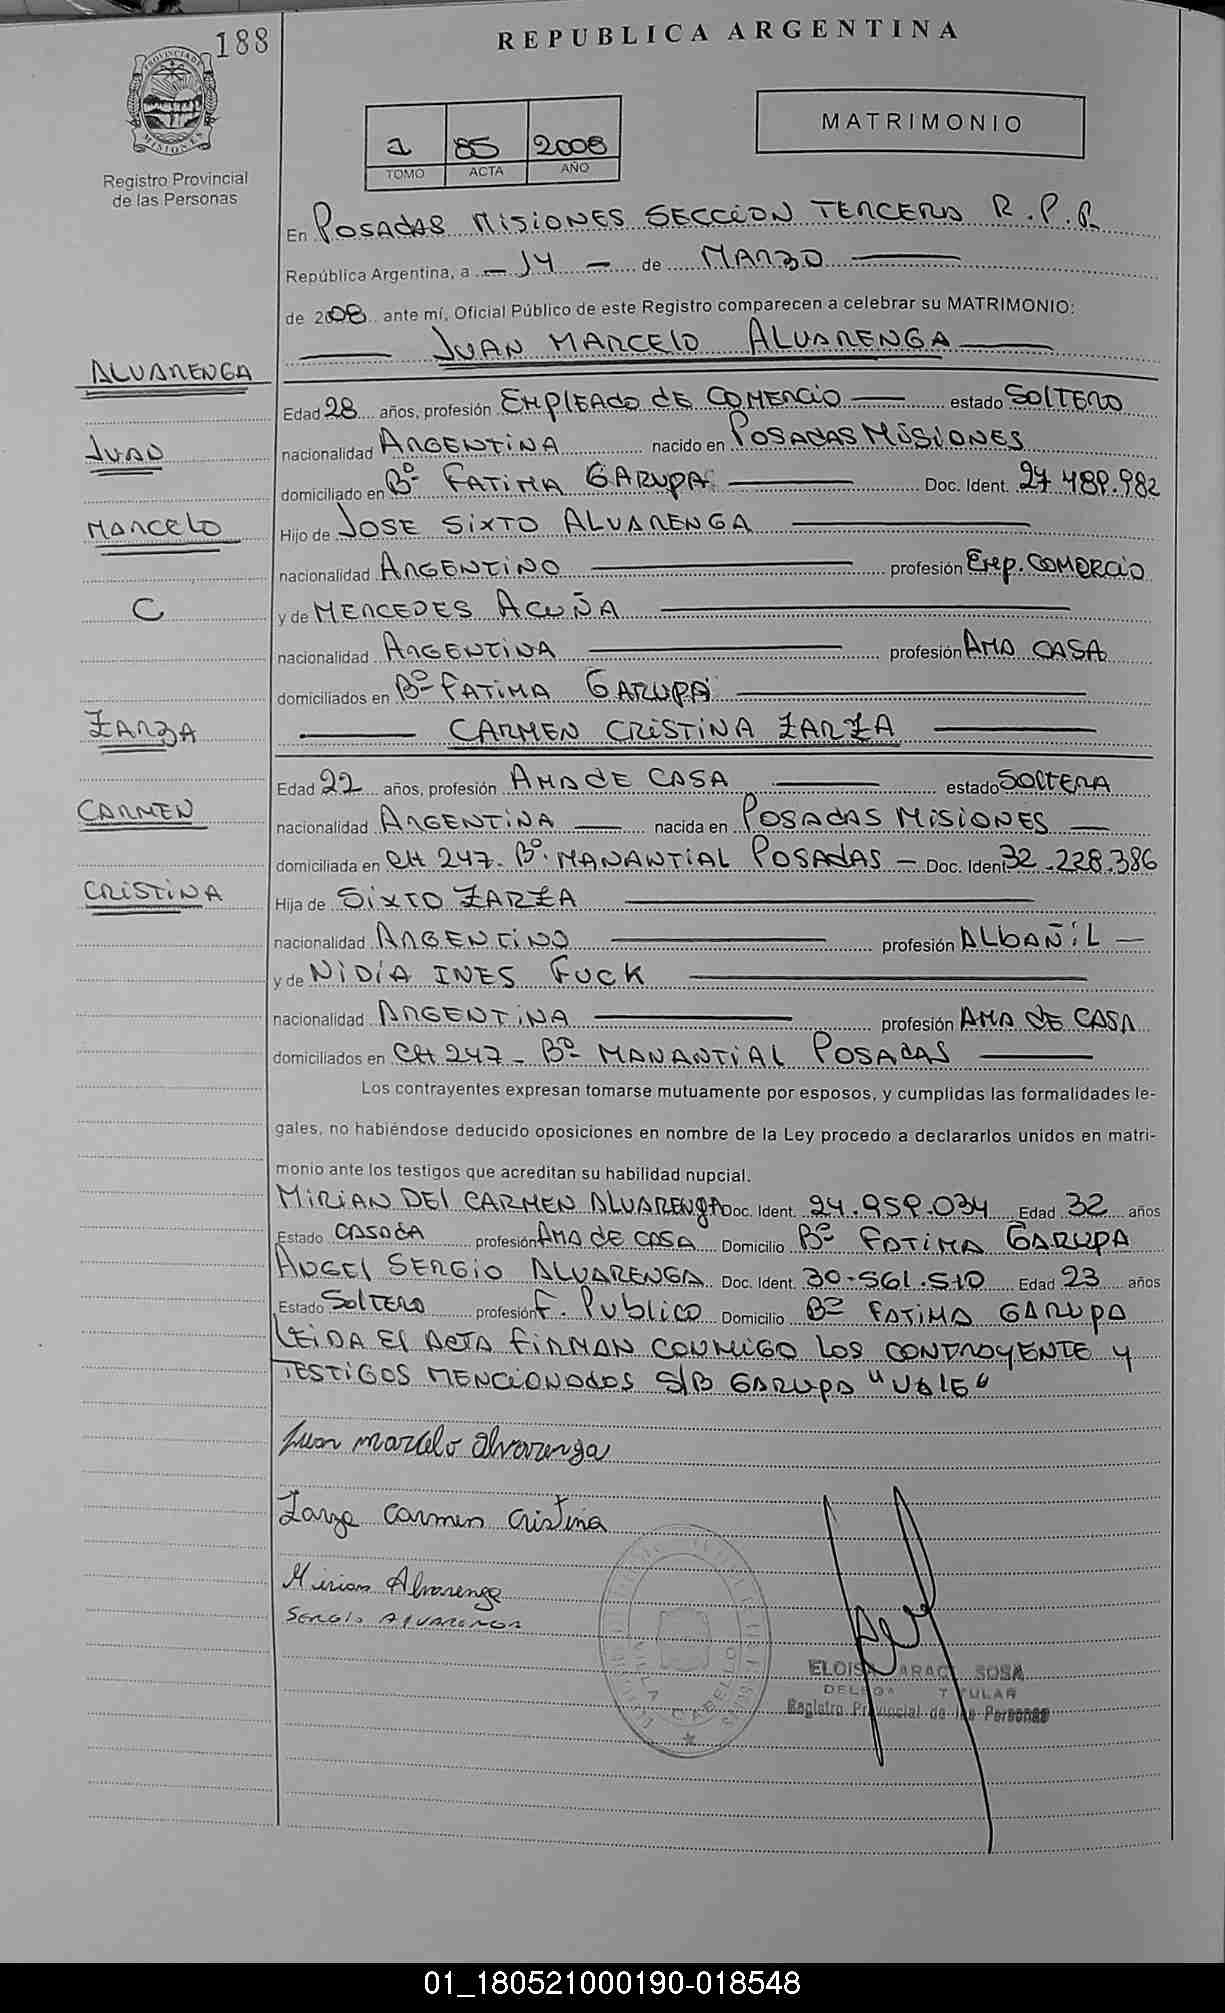 188
REPUBLICA ARGENTINA
PROVINCIA DE MISIONES
Registro Provincial
de las Personas
MATRIMONIO
1 85 2008
TOMO ACTA AÑO
En POSADAS MISIONES SECCION TERCERA R.P.P.
República Argentina, a - 14 - de MARZO
de 2008 ante mí, Oficial Público de este Registro comparecen a celebrar su MATRIMONIO:
JUAN MARCELO ALVARENGA
ALVARENGA
Edad 28 años, profesión EMPLEADO DE COMERCIO estado SOLTERO
JUAN
nacionalidad ARGENTINA nacido en POSADAS MISIONES
domiciliado en Bº FATIMA GARUPA Doc. Ident. 27.489.982
MARCELO
Hijo de JOSE SIXTO ALVARENGA
nacionalidad ARGENTINO profesión EMP. COMERCIO
C
y de MERCEDES ACUÑA
nacionalidad ARGENTINA profesión AMA CASA
domiciliados en Bº FATIMA GARUPA
ZARZA
CARMEN CRISTINA ZARZA
Edad 22 años, profesión AMA DE CASA estado SOLTERA
CARMEN
nacionalidad ARGENTINA nacida en POSADAS MISIONES
domiciliada en CH 247- Bº. MANANTIAL POSADAS - Doc. Ident 32.228.386
CRISTINA
Hija de SIXTO ZARZA
nacionalidad ARGENTINO profesión ALBAÑIL
y de NIDIA INES FUCK
nacionalidad ARGENTINA profesión AMA DE CASA
domiciliados en CH 247- Bº MANANTIAL POSADAS
Los contrayentes expresan tomarse mutuamente por esposos, y cumplidas las formalidades le-
gales, no habiéndose deducido oposiciones en nombre de la Ley procedo a declararlos unidos en matri-
monio ante los testigos que acreditan su habilidad nupcial.
MIRIAN DEL CARMEN ALVARENGA Doc. Ident. 24.959.034 Edad 32 años
Estado CASADA profesión AMA DE CASA Domicilio Bº FATIMA GARUPA
ANGEL SERGIO ALVARENGA Doc. Ident. 30-561.510 Edad 23 años
Estado SOLTERO profesión F. PUBLICO Domicilio Bº FATIMA GARUPA
LEIDA EL ACTA FIRMAN CONMIGO LOS CONTRAYENTE Y
TESTIGOS MENCIONADOS S/B GARUPA "VALE"
Juan marcelo alvarenga
Zarza Carmen Cristina
Mirian Alvarenga
SERGIO ALVARENGA
VILLA CABELLO
ELOISA ARACI SOSA
DELEGA TITULAR
Registro Provincial de las Personas
01_180521000190-018548